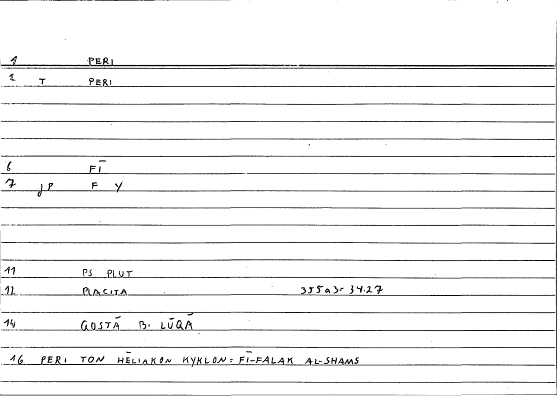 1 PERI
2 T PERI
6 FĪ
7 jP F Y
11 PS PLUT
12 PLACITA 355a3- 34.27
14 QOSTĀ B. LŪQĀ
16 PERI TON HĒLIAKON KYKLON = FĪ-FALAK AL-SHAMS